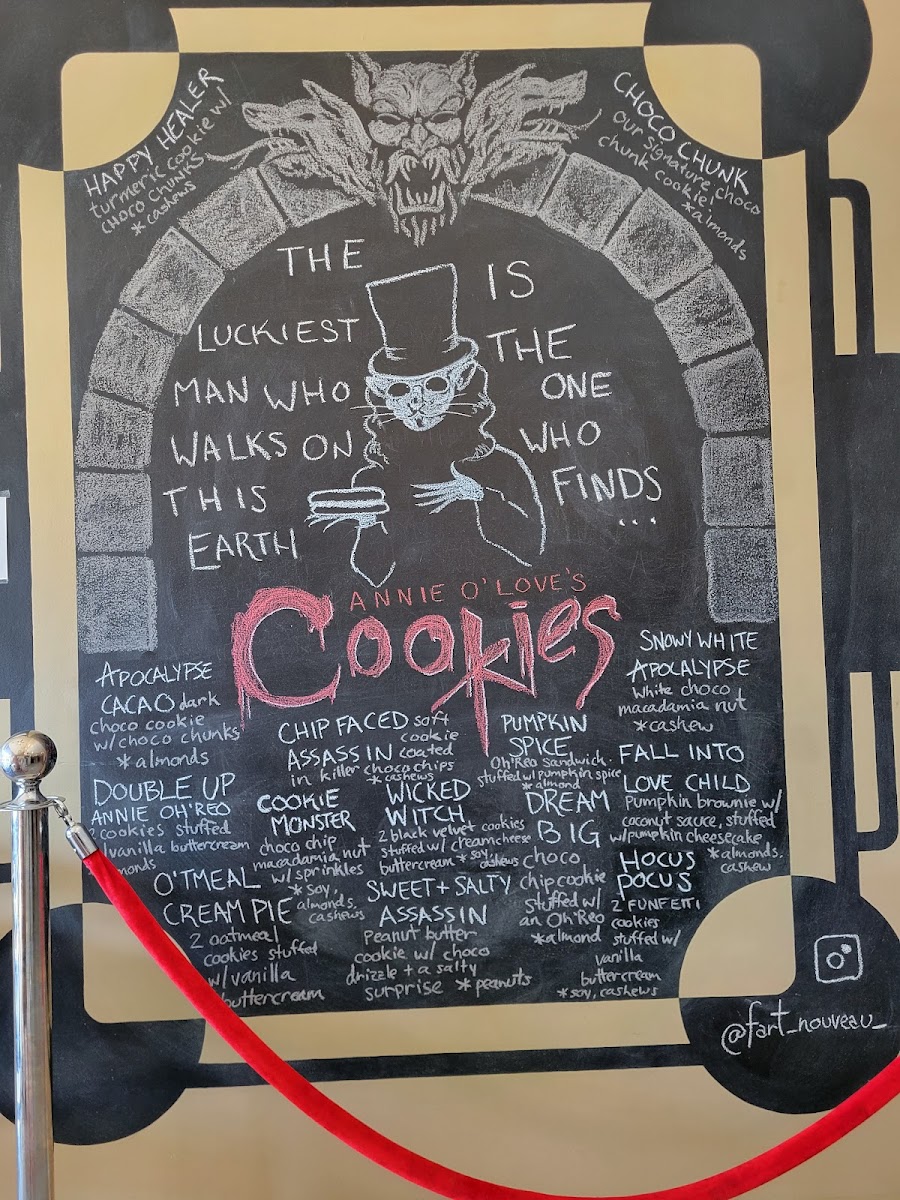 HAPPY HEALER
turmeric cookie w/
CHOCO CHUNKS
*cashews
CHOCO CHUNK
our signature choco
chunk cookie!
*almonds
THE
LUCKIEST
MAN WHO
WALKS ON
THIS
EARTH
IS
THE
ONE
WHO
FINDS
...
ANNIE O'LOVE'S
Cookies
APOCALYPSE
CACAO dark
choco cookie
w/choco chunks
*almonds
SNOWY WHITE
APOCALYPSE
white choco
macadamia nut
*cashew
CHIP FACED soft
cookie
ASSASSIN coated
in killer choco chips
*cashews
PUMPKIN
SPICE
Oh'Reo sandwich.
stuffed w/pumpkin spice
*almond
FALL INTO
LOVE CHILD
pumpkin brownie w/
coconut sauce, stuffed
w/pumpkin cheesecake
*almonds.
cashew
DOUBLE UP
ANNIE OH'REO
2 cookies stuffed
vanilla buttercream
COOKIE
MONSTER
choco chip
macadamia nut
w/ sprinkles
*soy,
almonds,
cashews
WICKED
WITCH
2 black velvet cookies
stuffed w/creamcheese
buttercream *soy, cashews
DREAM
BIG
choco
chip cookie
stuffed w/
an Oh'Reo
*almond
HOCUS
POCUS
2 FUNFETTI
cookies
stuffed w/
vanilla
buttercream
*soy, cashews
O'TMEAL
CREAM PIE
2 oatmeal
cookies stuffed
w/vanilla
buttercream
SWEET + SALTY
ASSASSIN
Peanut butter
cookie w/ choco
drizzle + a salty
surprise *peanuts
@fart_nouveau_